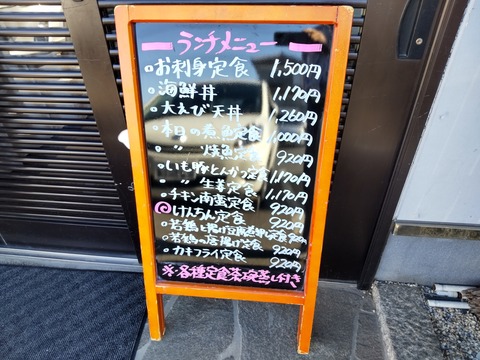 ランチメニュー
○お刺身定食 1,500円
○海鮮丼 1,170円
○大えび天丼 1,260円
○本日の煮魚定食 1,000円
○ 〃 焼魚定食 920円
○いも豚とんかつ定食 1,170円
○ 〃 生姜定食 1,170円
○チキン南蛮定食 920円
けんちん定食 920円
○若鶏と揚げ豆腐 定食 920円
○若鶏の唐揚げ定食 920円
○カキフライ定食 920円
※各種定食茶碗蒸し付き